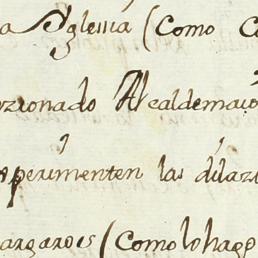 a Yglesia (Como
ozionado Alcaldemaio
xperimenten las dilaz
cargareis (Comolohago